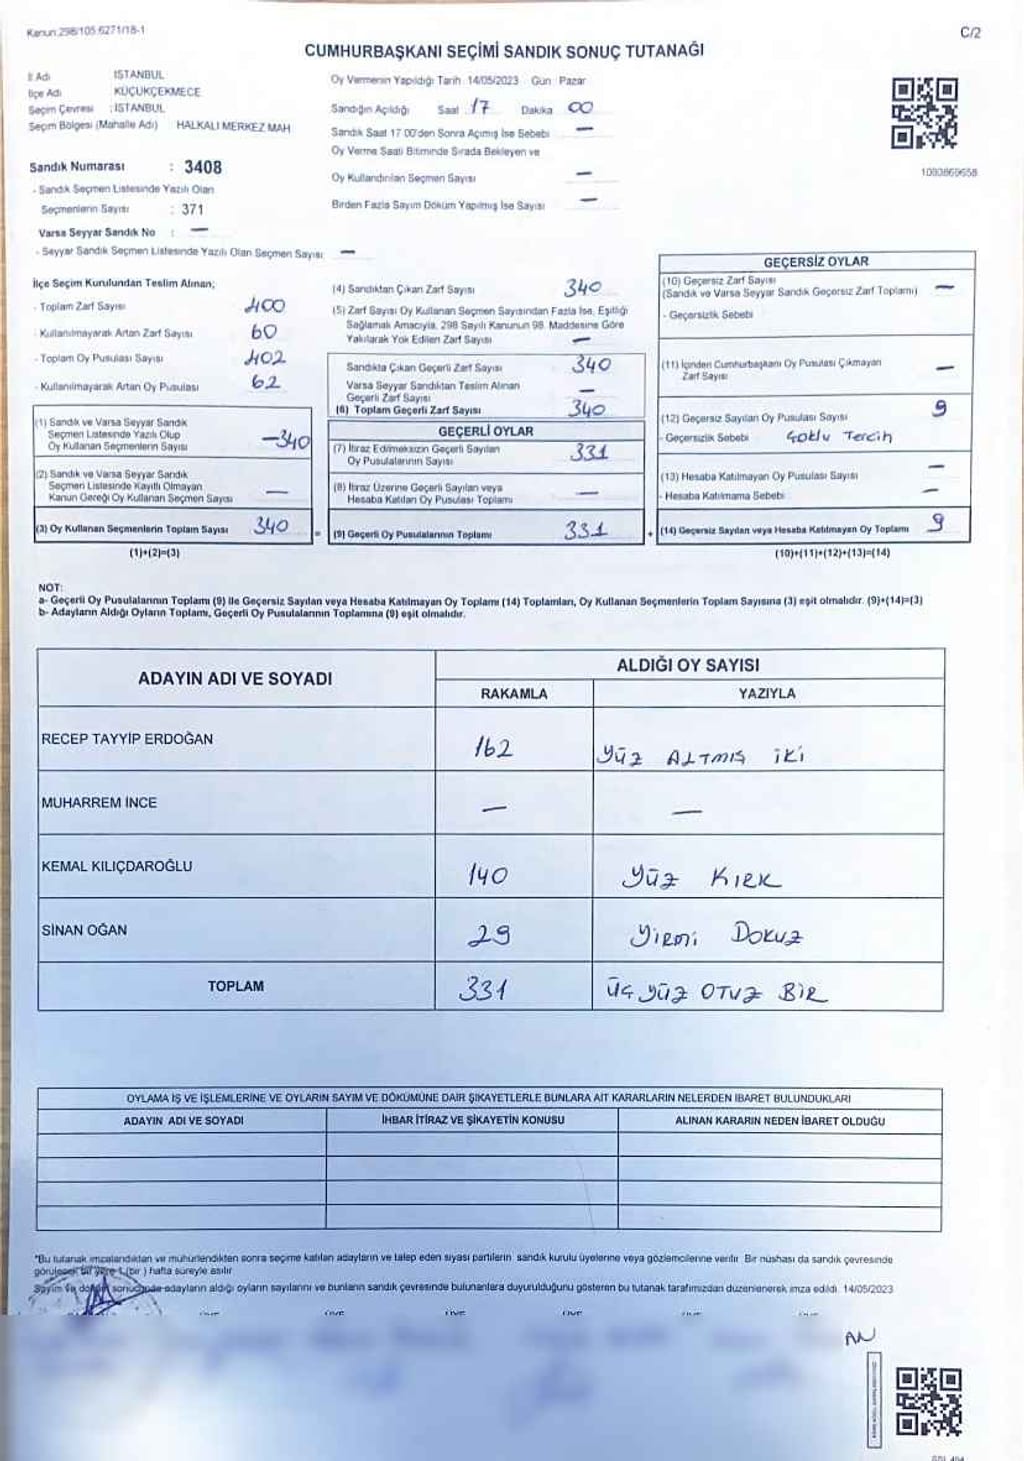 Kanun:298/105.6271/18-1
C/2
CUMHURBAŞKANI SEÇİMİ SANDIK SONUÇ TUTANAĞI
İl Adı İSTANBUL
İlçe Adı KÜÇÜKÇEKMECE
Seçim Çevresi : İSTANBUL
Seçim Bölgesi (Mahalle Adı) HALKALI MERKEZ MAH
Sandık Numarası : 3408
- Sandık Seçmen Listesinde Yazılı Olan
Seçmenlerin Sayısı : 371
Varsa Seyyar Sandık No : —
- Seyyar Sandık Seçmen Listesinde Yazılı Olan Seçmen Sayısı: —
Oy Vermenin Yapıldığı Tarih :14/05/2023 Gün : Pazar
Sandığın Açıldığı Saat 17 Dakika 00
Sandık Saat 17:00'den Sonra Açımış İse Sebebi —
Oy Verme Saati Bitiminde Sırada Bekleyen ve
Oy Kullandırılan Seçmen Sayısı —
Birden Fazla Sayım Döküm Yapılmış İse Sayısı —
1080869658
İlçe Seçim Kurulundan Teslim Alınan;
- Toplam Zarf Sayısı 400
- Kullanılmayarak Artan Zarf Sayısı 60
- Toplam Oy Pusulası Sayısı 402
- Kullanılmayarak Artan Oy Pusulası 62
(1) Sandık ve Varsa Seyyar Sandık
Seçmen Listesinde Yazılı Olup
Oy Kullanan Seçmenlerin Sayısı —340
(2) Sandık ve Varsa Seyyar Sandık
Seçmen Listesinde Kayıtlı Olmayan
Kanun Gereği Oy Kullanan Seçmen Sayısı —
(3) Oy Kullanan Seçmenlerin Toplam Sayısı 340
(1)+(2)=(3)
(4) Sandıktan Çıkan Zarf Sayısı 340
(5) Zarf Sayısı Oy Kullanan Seçmen Sayısından Fazla İse, Eşitliği
Sağlamak Amacıyla, 298 Sayılı Kanunun 98. Maddesine Göre
Yakılarak Yok Edilen Zarf Sayısı —
Sandıkta Çıkan Geçerli Zarf Sayısı 340
Varsa Seyyar Sandıktan Teslim Alınan
Geçerli Zarf Sayısı —
(6) Toplam Geçerli Zarf Sayısı 340
GEÇERLİ OYLAR
(7) İtiraz Edilmeksizin Geçerli Sayılan
Oy Pusulalarının Sayısı 331
(8) İtiraz Üzerine Geçerli Sayılan veya
Hesaba Katılan Oy Pusulası Toplamı —
= (9) Geçerli Oy Pusulalarının Toplamı 331
GEÇERSİZ OYLAR
(10) Geçersiz Zarf Sayısı
(Sandık ve Varsa Seyyar Sandık Geçersiz Zarf Toplamı) —
- Geçersizlik Sebebi
(11) İçinden Cumhurbaşkanı Oy Pusulası Çıkmayan
Zarf Sayısı —
(12) Geçersiz Sayılan Oy Pusulası Sayısı 9
- Geçersizlik Sebebi Çoklu Tercih
(13) Hesaba Katılmayan Oy Pusulası Sayısı —
- Hesaba Katılmama Sebebi —
+ (14) Geçersiz Sayılan veya Hesaba Katılmayan Oy Toplamı 9
(10)+(11)+(12)+(13)=(14)
NOT:
a- Geçerli Oy Pusulalarının Toplamı (9) ile Geçersiz Sayılan veya Hesaba Katılmayan Oy Toplamı (14) Toplamları, Oy Kullanan Seçmenlerin Toplam Sayısına (3) eşit olmalıdır. (9)+(14)=(3)
b- Adayların Aldığı Oyların Toplamı, Geçerli Oy Pusulalarının Toplamına (9) eşit olmalıdır.
ADAYIN ADI VE SOYADI ALDIĞI OY SAYISI
RAKAMLA YAZIYLA
RECEP TAYYİP ERDOĞAN 162 Yüz ALTMIŞ İKİ
MUHARREM İNCE — —
KEMAL KILIÇDAROĞLU 140 Yüz KIRK
SİNAN OĞAN 29 Yirmi DOKUZ
TOPLAM 331 ÜÇ YÜZ OTUZ BİR
OYLAMA İŞ VE İŞLEMLERİNE VE OYLARIN SAYIM VE DÖKÜMÜNE DAİR ŞİKAYETLERLE BUNLARA AİT KARARLARIN NELERDEN İBARET BULUNDUKLARI
ADAYIN ADI VE SOYADI İHBAR İTİRAZ VE ŞİKAYETİN KONUSU ALINAN KARARIN NEDEN İBARET OLDUĞU
*Bu tutanak imzalandıktan ve mühürlendikten sonra seçime katılan adayların ve talep eden siyasi partilerin sandık kurulu üyelerine veya gözlemcilerine verilir. Bir nüshası da sandık çevresinde
görülecek bir yere 1 (bir ) hafta süreyle asılır.
Sayım ve döküm sonucunda adayların aldığı oyların sayılarını ve bunların sandık çevresinde bulunanlara duyurulduğunu gösteren bu tutanak tarafımızdan düzenlenerek imza edildi. 14/05/2023